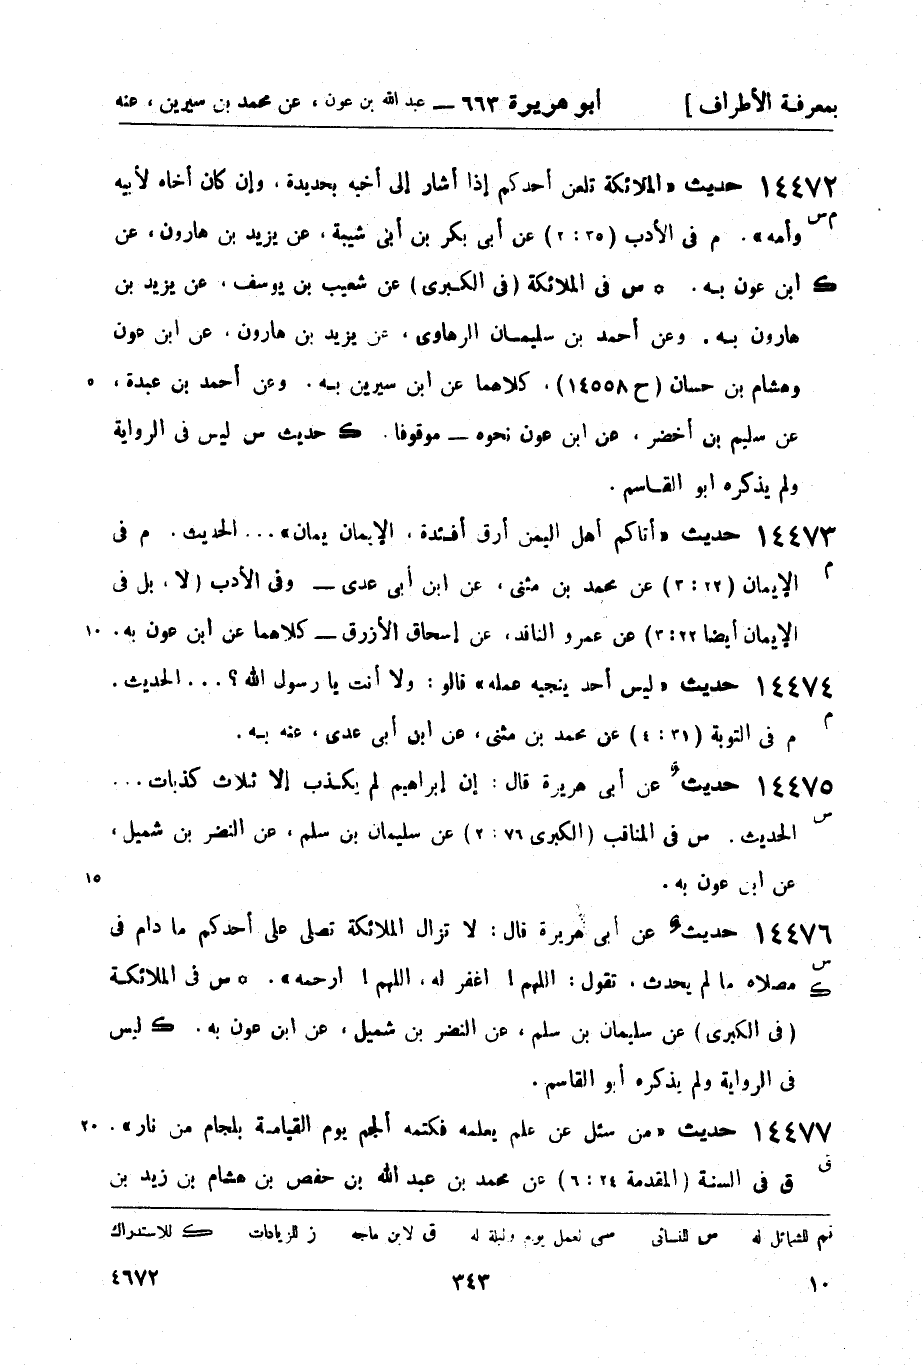 بمعرفة الأطراف ] أبو هريرة ٦٦٣ — عبد الله بن عون ، عن محمد بن سيرين ، عنه
١٤٤٧٢ حديث «الملائكة تلعن أحدكم إذا أشار إلى أخيه بحديدة ، وإن كان أخاه لأبيه
م س
وأمه» . م فى الأدب (٣٥ : ٢) عن أبى بكر بن أبى شيبة ، عن يزيد بن هارون ، عن
ك ابن عون به . ٥ س فى الملائكة (فى الكبرى) عن شعيب بن يوسف ، عن يزيد بن
هارون به . وعن أحمد بن سليمان الرهاوى ، عن يزيد بن هارون ، عن ابن عون
وهشام بن حسان (ح ١٤٥٥٨) ، كلاهما عن ابن سيرين به . وعن أحمد بن عبدة ، ٥
عن سليم بن أخضر ، عن ابن عون نحوه — موقوفا . ك حديث س ليس فى الرواية
ولم يذكره ابو القاسم .
١٤٤٧٣ حديث «أتاكم أهل اليمن أرق أفئدة ، الإيمان يمان» ... الحديث . م فى
م
الإيمان (٢٢ : ٣) عن محمد بن مثنى ، عن ابن أبى عدى — وفى الأدب (لا ، بل فى
الإيمان أيضا ٢٢ : ٣) عن عمرو الناقد ، عن إسحاق الأزرق — كلاهما عن ابن عون به . ١٠
١٤٤٧٤ حديث «ليس أحد ينجيه عمله» قالو : ولا أنت يا رسول الله ؟ ... الحديث .
م
م فى التوبة (٣١ : ٤) عن محمد بن مثنى ، عن ابن أبى عدى ، عنه به .
١٤٤٧٥ حديث عن أبى هريرة قال : إن إبراهيم لم يكذب إلا ثلاث كذبات ...
س
الحديث . س فى المناقب (الكبرى ٧٦ : ٢) عن سليمان بن سلم ، عن النضر بن شميل ،
عن ابن عون به . ١٥
١٤٤٧٦ حديث عن أبى هريرة قال : لا تزال الملائكة تصلى على أحدكم ما دام فى
س
ك مصلاه ما لم يحدث ، تقول : اللهم ! اغفر له ، اللهم ! ارحمه» . ٥ س فى الملائكة
(فى الكبرى) عن سليمان بن سلم ، عن النضر بن شميل ، عن ابن عون به . ك ليس
فى الرواية ولم يذكره أبو القاسم .
١٤٤٧٧ حديث «من سئل عن علم يعلمه فكتمه ألجم يوم القيامة بلجام من نار» . ٢٠
ق
ق فى السنة (المقدمة ٢٤ : ٦) عن محمد بن عبد الله بن حفص بن هشام بن زيد بن
تم للشمائل له س للنسائى سى لعمل يوم وليلة له ق لابن ماجه ز للزيادات ك للاستدراك
١٠ ٣٤٣ ٤٦٧٢